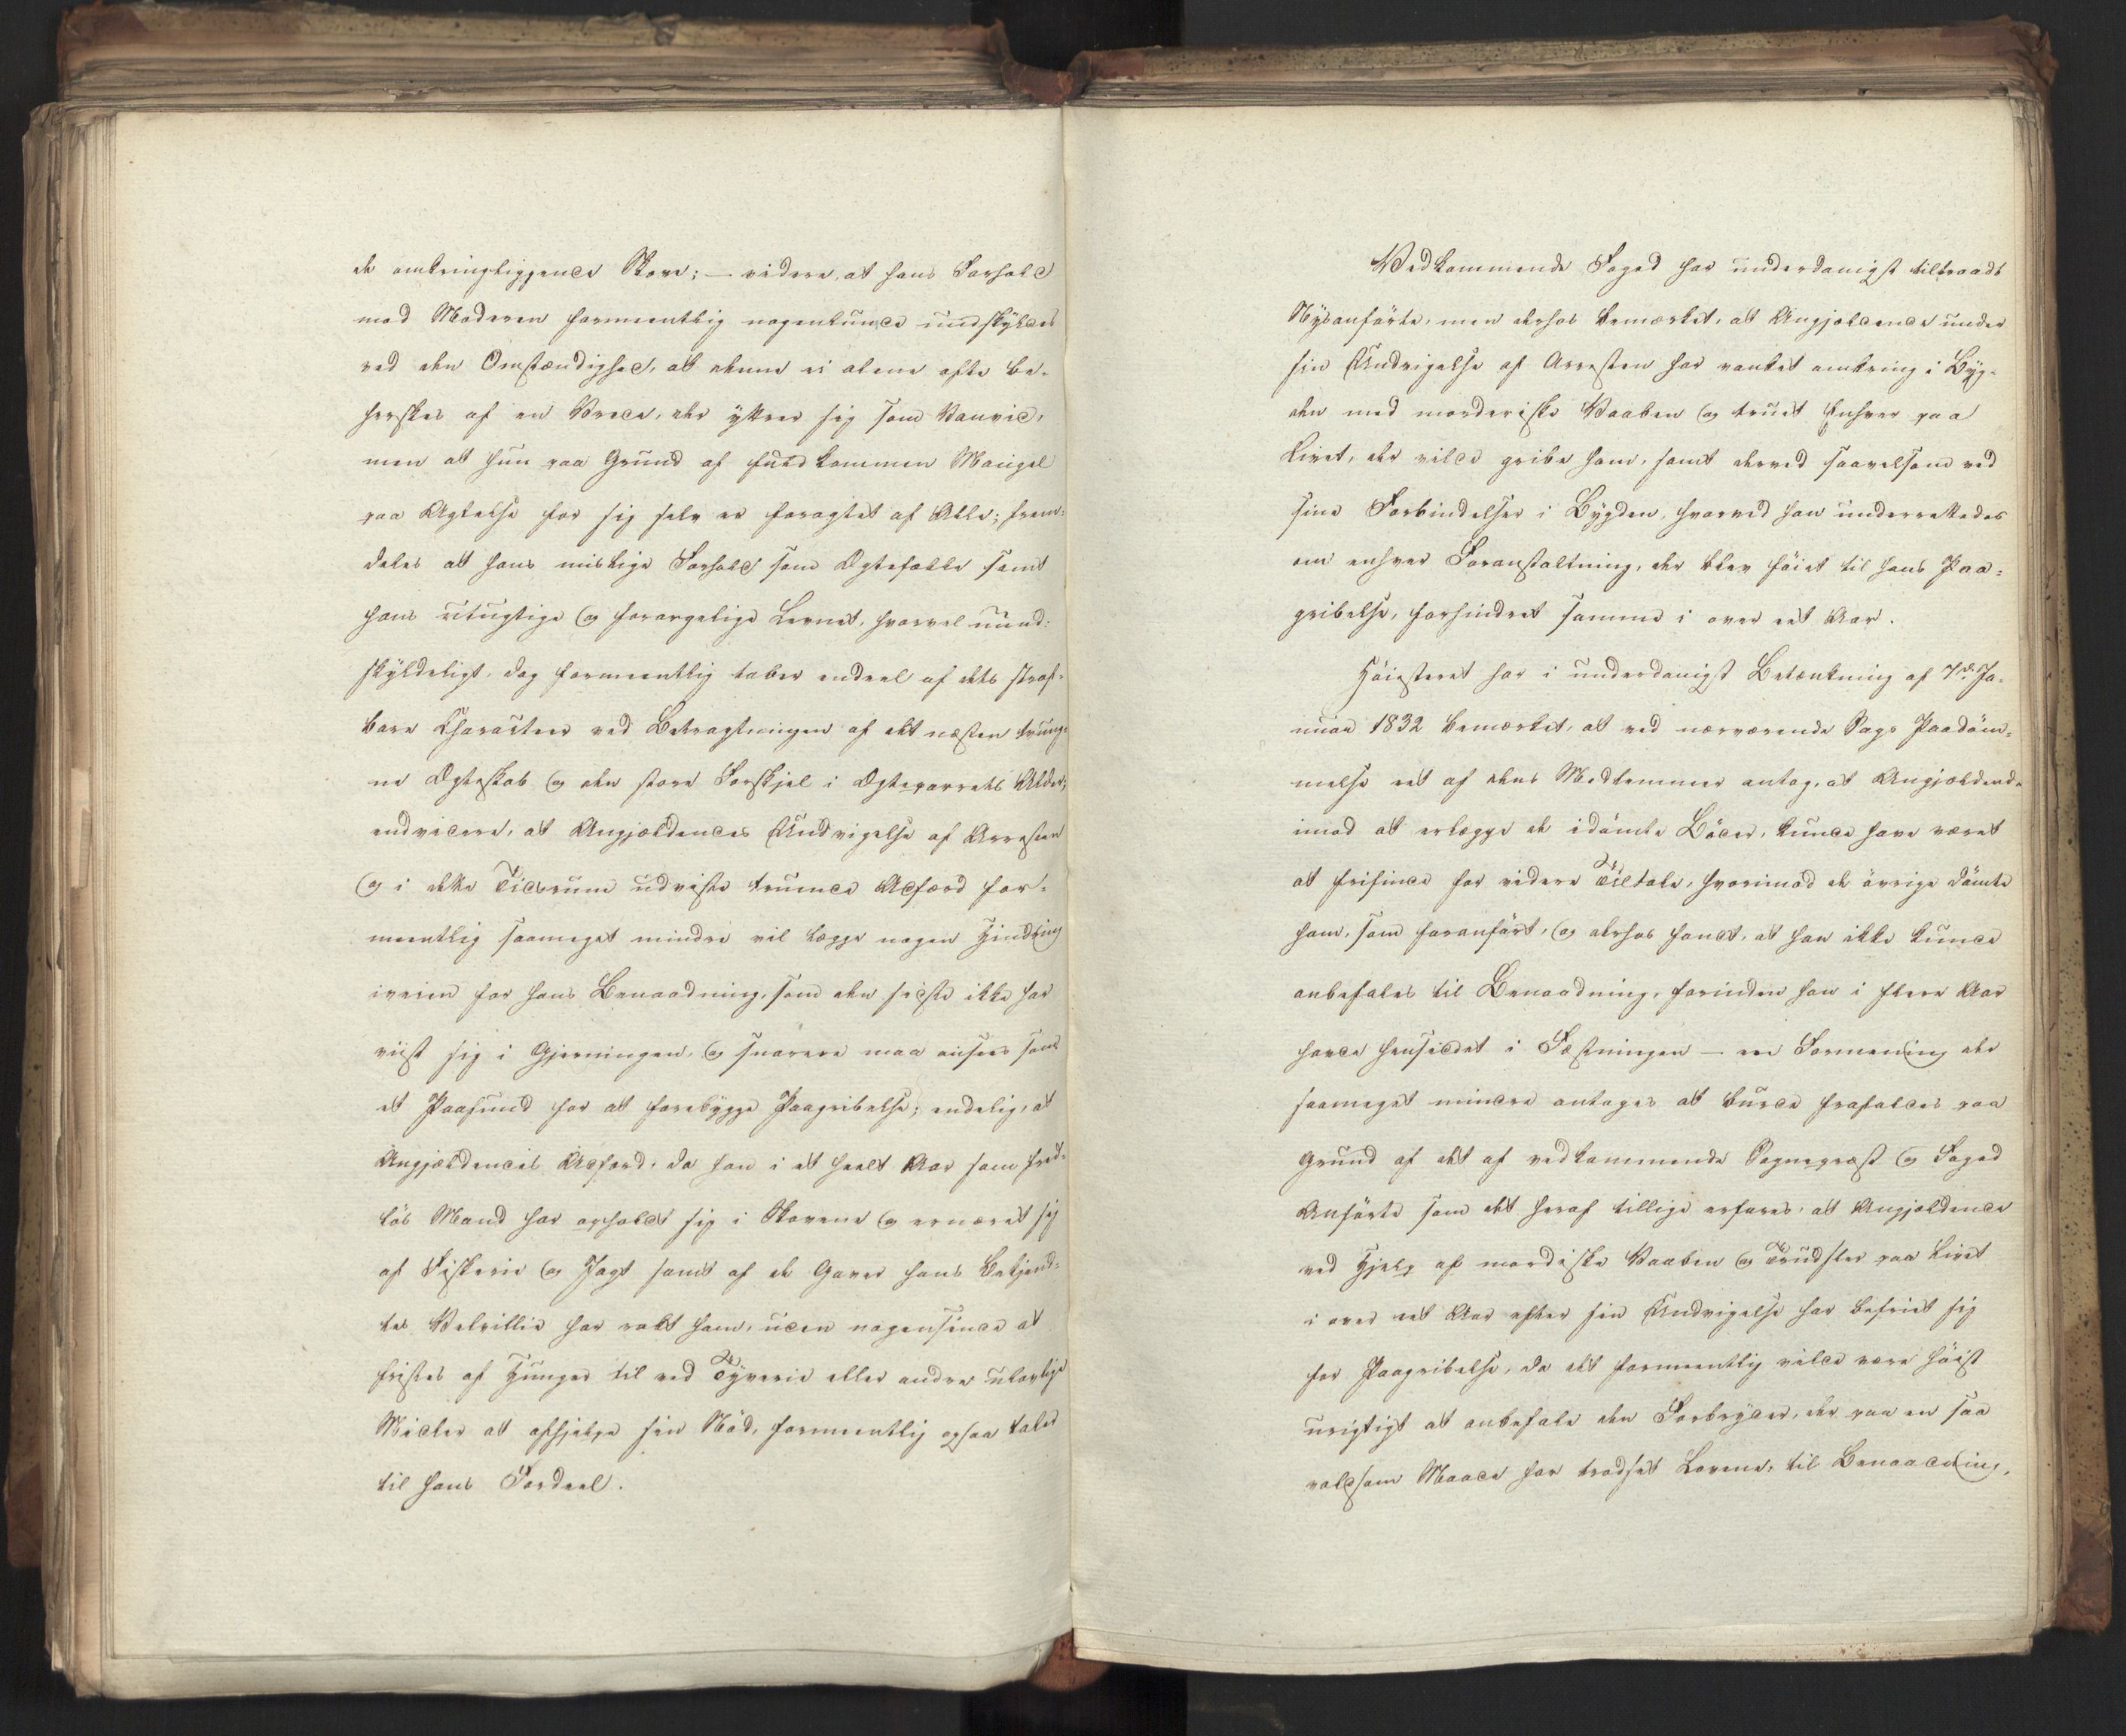 de omkringliggende Skove; — videre, at hans Forhold
mod Moderen formeentlig nogenlunde undskyldes
ved den Omstændighed, at denne ei alene ofte be-
herskes af en Vrede, der yttrer sig som Vanvid,
men at hun paa Grund af fuldkommen Mangel
paa Agtelse for sig selv er foragtet af Alle; frem-
deles at hans mislige Forhold som Ægtefælle samt
hans utugtige og forargelige Levnet, hvorvel uund-
skyldeligt, dog formeentlig taber endeel af dets straf-
bare Charakteer ved Betragtningen af det næsten tvung-
ne Ægteskab og den store Forskjel i Ægteparrets Alder;
endvidere, at Angjældendes Undvigelse af Arresten
og i dette Tidsrum udviste truende Adfærd for-
meentlig saameget mindre vil lægge nogen Hindring
iveien for hans Benaadning, som den sidste ikke har
viist sig i Gjerningen, og snarere maa ansees som
et Paafund for at forebygge Paagribelse; endelig, at
Angjældendes Adfærd, da han i et heelt Aar som fred-
lös Mand har opholdt sig i Skovene og ernæret sig
af Fiskerie og Jagt samt af de Gaver hans Bekjend-
tes Velvillie har rakt ham, uden nogensinde at
fristes af Hunger til ved Tyverie eller andre ulovlige
Midler at afhjelpe sin Nöd, formeentlig ogsaa taler
til hans Fordeel.
Vedkommende Foged har underdanigst tiltraadt
Nysanförte, men derhos bemærket, at Angjeldende under
sin Undvigelse af Arresten har vanket omkring i Byg-
den med morderiske Vaaben og truet Enhver paa
Livet, der vilde gribe ham, samt derved saavelsom ved
sine Forbindelser i Bygden, hvorved han underrettedes
om enhver Foranstaltning, der blev föiet til hans Paa-
gribelse, forhindret samme i over eet Aar.
Höiesteret har i underdanigst Betænkning af 7de Ja-
nuar 1832 bemærket, at ved nærværende Sags Paadöm-
melse eet af dens Medlemmer antog, at Angjældende
imod at erlægge de idömte Böder, kunde have været
at frifinde for videre Tiltale, hvorimod de övrige dömte
ham, som foranfört, og derhos fandt, at han ikke kunde
anbefales til Benaadning, forinden han i flere Aar
havde hensiddet i Fæstningen — en Formening der
saameget mindre antages at burde frafaldes paa
Grund af det af vedkommende Sognepræst og Foged
Anförte som det heraf tillige erfares, at Angjeldende
ved Hjelp af mordiske Vaaben og Trudsler paa Livet
i over eet Aar efter sin Undvigelse har befriet sig
for Paagribelse, da det formeentlig vilde være höist
urigtigt at anbefale den Forbryder, der paa en saa
voldsom Maade har trodset Lovene, til Benaadning,